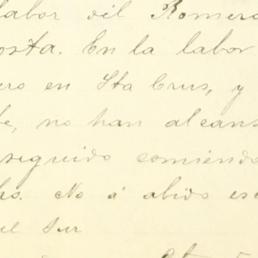 labor del Romero
osta. En la labor
ero en Sta Crus, y
te, no han alcans
seguido comiendo
ho. No á abido es
el Sur